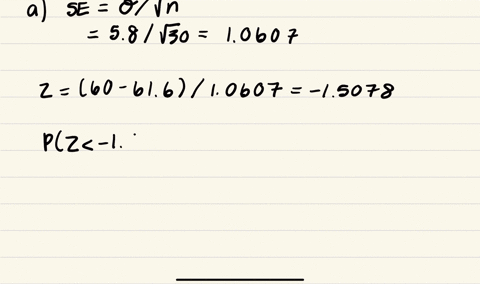 a) SE = σ/√n
= 5.8/√30 = 1.0607
Z = (60-61.6)/1.0607 = -1.5078
P(Z<-1.